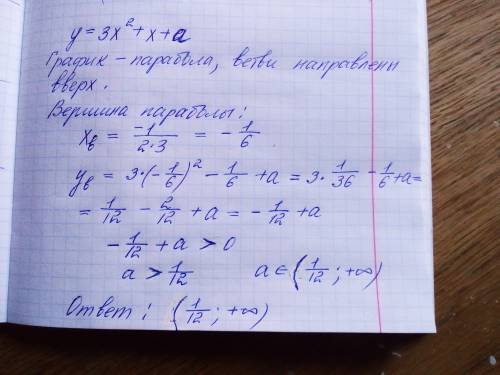 y = 3x² + x + a
График – парабола, ветви направлены
вверх.
Вершина параболы:
xв = -1/(2·3) = -1/6
yв = 3·(-1/6)² - 1/6 + a = 3·1/36 - 1/6 + a =
= 1/12 - 2/12 + a = -1/12 + a
-1/12 + a > 0
a > 1/12 a ∈ (1/12; +∞)
Ответ: (1/12; +∞)